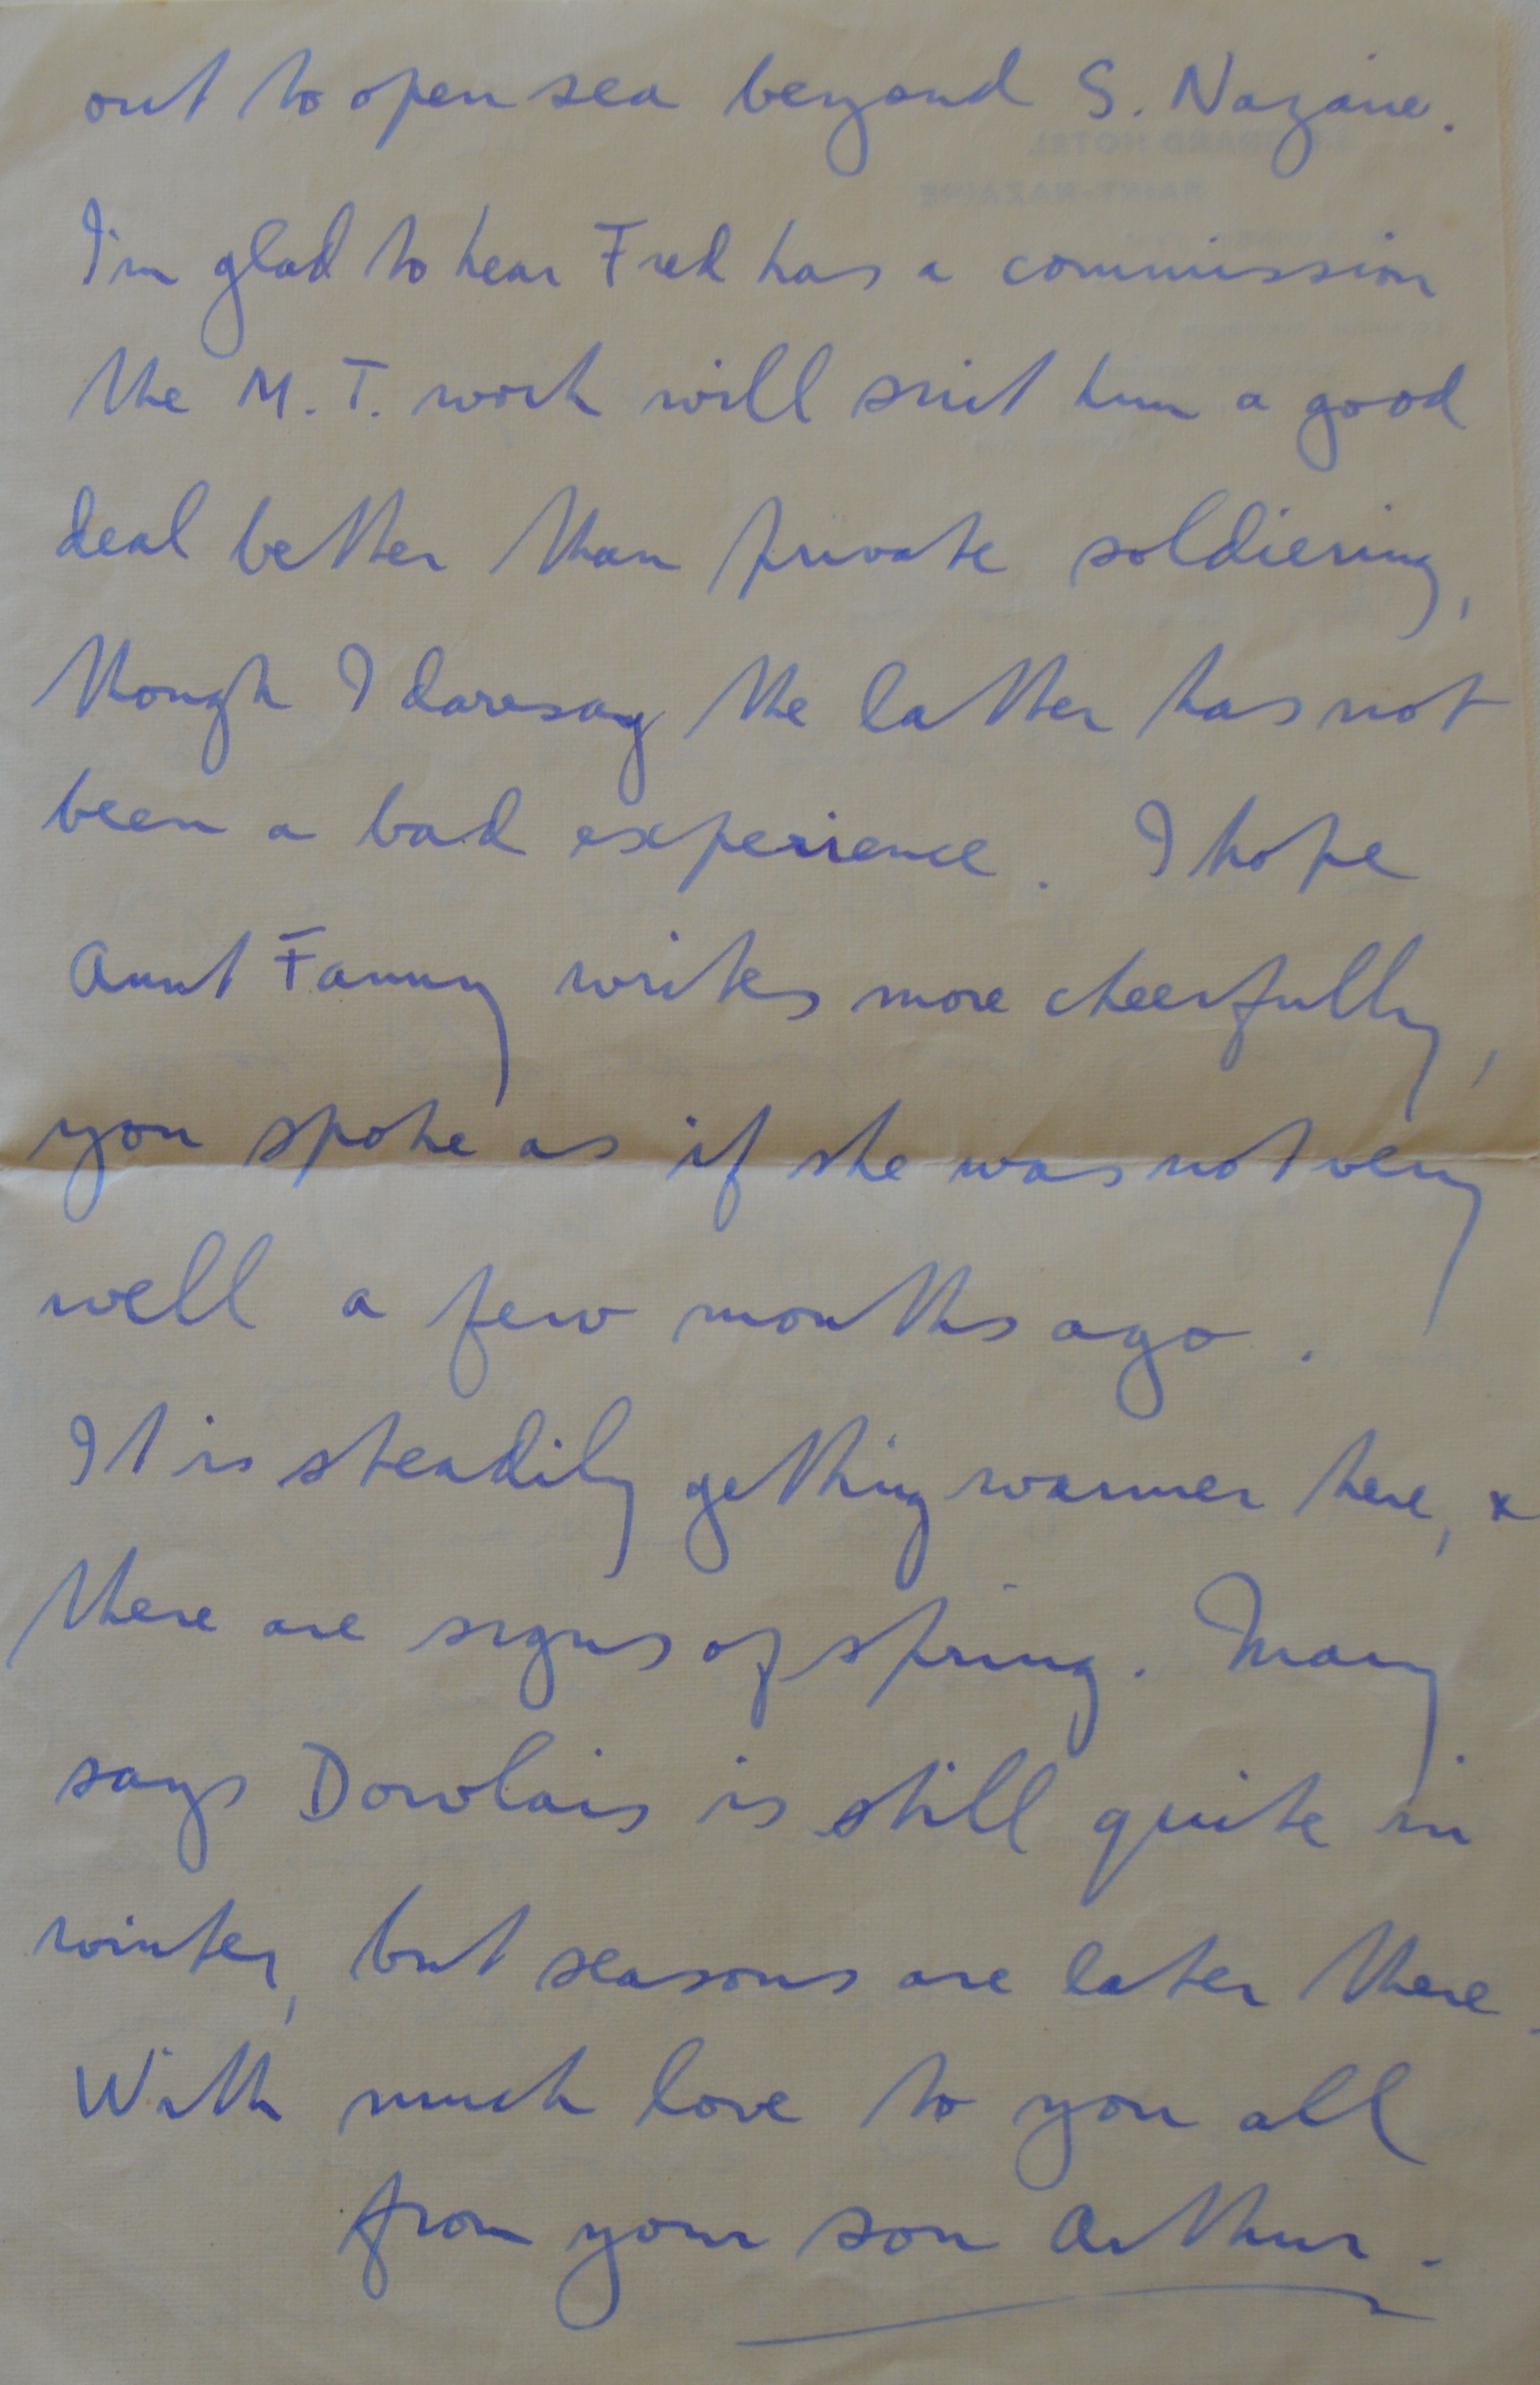 out to open sea beyond S. Nazaire.
I'm glad to hear Fred has a commission
the M.T. work will suit him a good
deal better than private soldiering,
though I daresay the latter has not
been a bad experience. I hope
Aunt Fanny writes more cheerfully,
you spoke as if she was not very
well a few months ago.
It is steadily getting warmer here, &
there are signs of spring. Mary
says Dowlais is still quite in
winter, but seasons are later there.
With much love to you all
from your son Arthur.